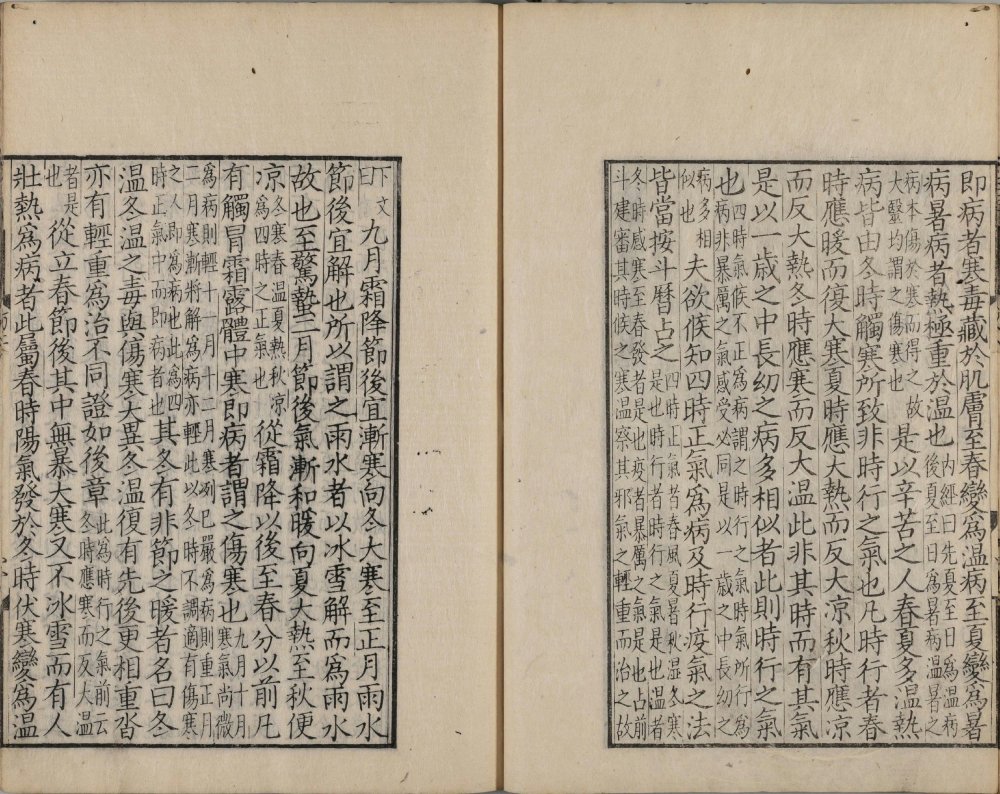 即病者寒毒藏於肌膚至春變爲温病至夏變爲暑
病暑病者熱極重於温也内經曰先夏至日爲温病後夏至日爲暑病温暑之
病本傷於寒而得之故大醫均謂之傷寒也是以辛苦之人春夏多温熱
病皆由冬時觸寒所致非時行之氣也凡時行者春
時應暖而復大寒夏時應大熱而反大凉秋時應凉
而反大熱冬時應寒而反大温此非其時而有其氣
是以一歲之中長幼之病多相似者此則時行之氣
也四時氣候不正爲病謂之時行之氣時氣所行爲病非暴厲之氣感受必同是以一歲之中長幼之
病多相似也夫欲候知四時正氣爲病及時行疫氣之法
皆當按斗曆占之四時正氣者春風夏暑秋湿冬寒是也時行者時行之氣是也温者
冬時感寒至春發者是也疫者暴厲之氣是也占前斗建審其時候之寒温察其邪氣之輕重而治之故
下文曰九月霜降節後宜漸寒向冬大寒至正月雨水
節後宜解也所以謂之雨水者以冰雪解而爲雨水
故也至驚蟄二月節後氣漸和暖向夏大熱至秋便
凉冬寒春温夏熱秋凉爲四時之正氣也從霜降以後至春分以前凡
有觸冒霜露體中寒即病者謂之傷寒也九月十月寒氣尚微
爲病則輕十一月十二月寒冽已嚴爲病則重正月二月寒漸將解爲病亦輕此以冬時不調適有傷寒
之人即爲病也此爲四時正氣中而即病者也其冬有非節之暖者名曰冬
温冬温之毒與傷寒大異冬温復有先後更相重沓
亦有輕重爲治不同證如後章此爲時行之氣前云冬時應寒而反大温
者是也從立春節後其中無暴大寒又不冰雪而有人
壯熱爲病者此屬春時陽氣發於冬時伏寒變爲温